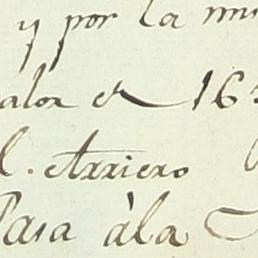 y por la mu
alor es 16
l. Arriero
Pasa à la